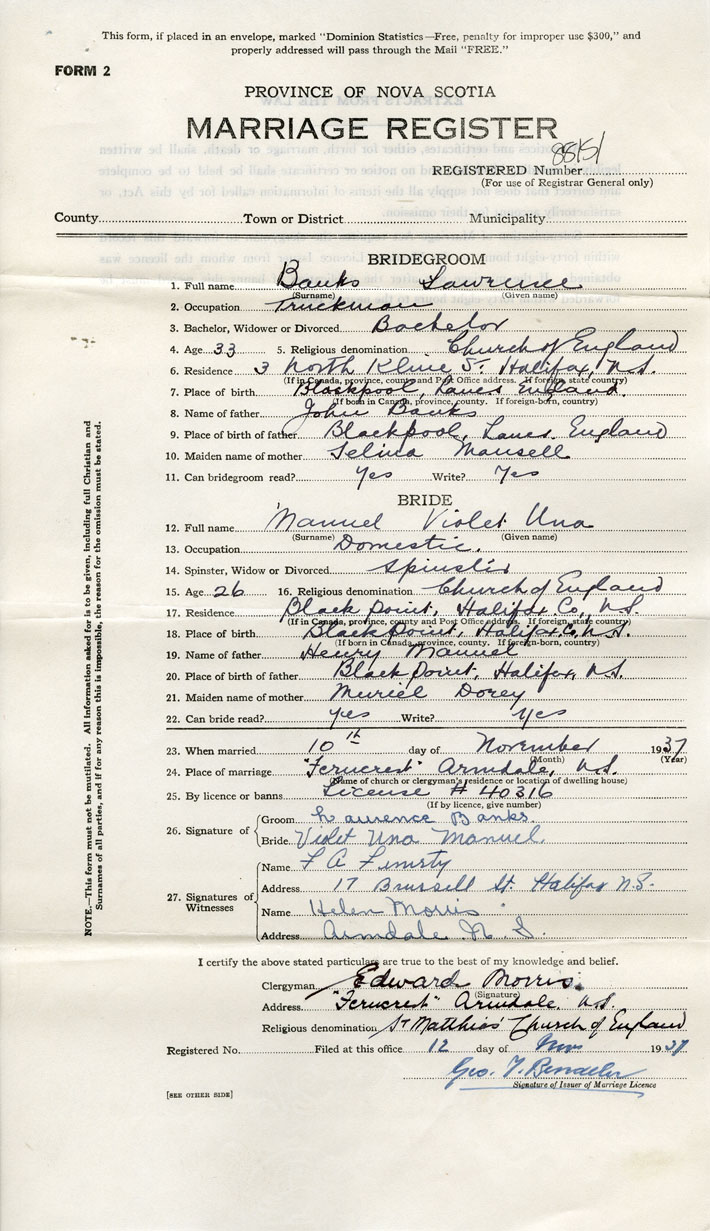 This form, if placed in an envelope, marked "Dominion Statistics—Free, penalty for improper use $300," and
properly addressed will pass through the Mail "FREE."
FORM 2
PROVINCE OF NOVA SCOTIA
MARRIAGE REGISTER
REGISTERED Number
(For use of Registrar General only)
County Town or District Municipality
BRIDEGROOM
1. Full name Banks Lawrence
(Surname) (Given name)
2. Occupation Truckman
3. Bachelor, Widower or Divorced Bachelor
4. Age 33 5. Religious denomination Church of England
6. Residence 3 North Kline St. Halifax, N.S.
(If in Canada, province, county and Post Office address. If foreign, state county)
7. Place of birth Blackpool, Lancs England.
(If born in Canada, province, county. If foreign-born, country)
8. Name of father John Banks
9. Place of birth of father Blackpool, Lancs. England
10. Maiden name of mother Selina Mansell
11. Can bridegroom read? Yes Write? Yes
BRIDE
12. Full name Manuel Violet Una
(Surname) (Given name)
13. Occupation Domestic.
14. Spinster, Widow or Divorced Spinster
15. Age 26 16. Religious denomination Church of England
17. Residence Black Point, Halifax Co., N.S.
(If in Canada, province, county and Post Office address. If foreign, state county)
18. Place of birth Black Point, Halifax Co, N.S.
(If born in Canada, province, county. If foreign-born, country)
19. Name of father Henry Manuel
20. Place of birth of father Black Point, Halifax, N.S.
21. Maiden name of mother Muriel Dorey
22. Can bride read? yes Write? yes
23. When married 10th day of November 1937
(Month) (Year)
24. Place of marriage "Ferncrest" Armdale, N.S.
(Name of church or clergyman's residence or location of dwelling house)
25. By licence or banns License # 40316
(If by licence, give number)
26. Signature of Groom Laurence Banks.
Bride Violet Una Manuel.
27. Signatures of Witnesses Name F A
Address 17 Brussell St. Halifax N.S.
Name Helen Morris
Address Armdale N. S.
I certify the above stated particulars are true to the best of my knowledge and belief.
Clergyman Edward Morris.
(Signature)
Address "Ferncrest" Armdale, N.S.
Religious denomination St Matthias' Church of England
Registered No. Filed at this office 12 day of Nov 1937
Geo. T.
Signature of Issuer of Marriage Licence
[SEE OTHER SIDE]
NOTE.—This form must not be mutilated. All information asked for is to be given, including full Christian and
Surnames of all parties, and if for any reason this is impossible, the reason for the omission must be stated.